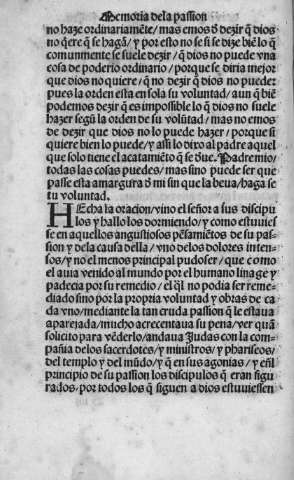 Memoria dela passion
no haze ordinariamẽte/mas emos ð dezir q̃ dios
no q̃ere q̃ se hagã/y por esto no se si se dize biẽ lo q̃
comunmente se suele dezir/q̃ dios no puede vna
cosa de poderio ordinario/porque se diria mejor
que dios no quiere/q̃ no dezir q̃ dios no pueder
pues la orden esta en sola su voluntad/aun q̃ biẽ
podemos dezir q̃ es impossible lo q̃ dios no suele
hazer segũ la orden de su volũtad/mas no emos
de dezir que dios no lo puede hazer/porque si
quiere bien lo puede/y assi lo dixo al padre aquel
que solo tiene el acatamiẽto q̃ se ðue. Padre mio/
todas las cosas puedes/mas si no puede ser que
passe esta amargura ð mi sin que la beua/haga se
tu voluntad.
HEcha la oracion/vino el señor a sus discipu
los y hallo los dormiendo/y como estuuies
se en aquellos angustiosos pẽsamiẽtos de su pas-
sion y de la causa della/vno delos dolores inten-
sos/y no el menos principal pudo ser/que como
el auia venido al mundo por el humano linage y
padecia por su remedio/el q̃l no podia ser reme-
diado sino por la propria voluntad y obras de ca
da vno/mediante la tan cruda passion q̃ le estaua
aparejada/mucho acrecentaua su pena/ver quã
solicito para vẽderlo/andaua Judas con la com-
pañia delos sacerdotes/y ministros/y phariseos/
del templo y del mũdo/y q̃ en sus agonias/y eñl
principio de su passion los discipulos q̃ eran figu
rados/por todos los q̃ siguen a dios estuuiessen